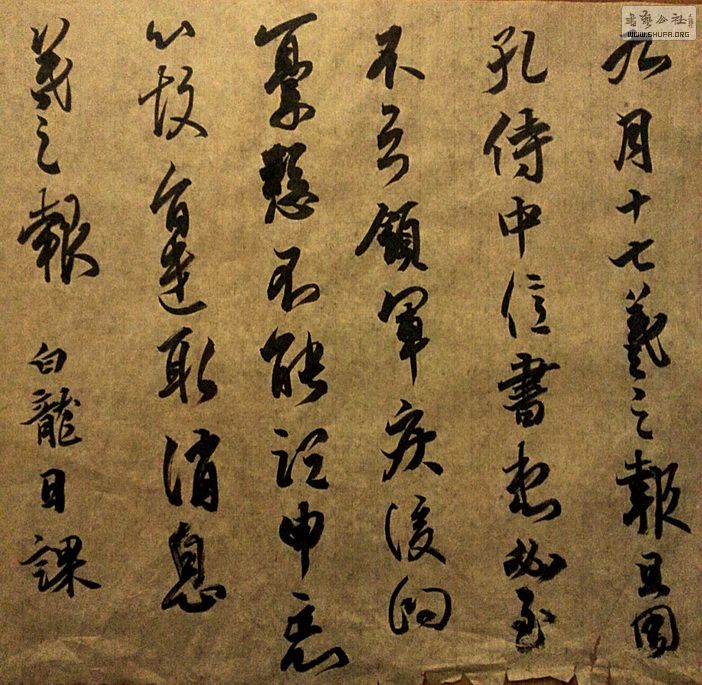 九月十七羲之報且因
孔侍中信書想必至
不知領軍疾後問
憂懸不能須臾忘
心故旨遣取消息
羲之報 白龍日課
書藝公社
WWW.SHUFA.ORG